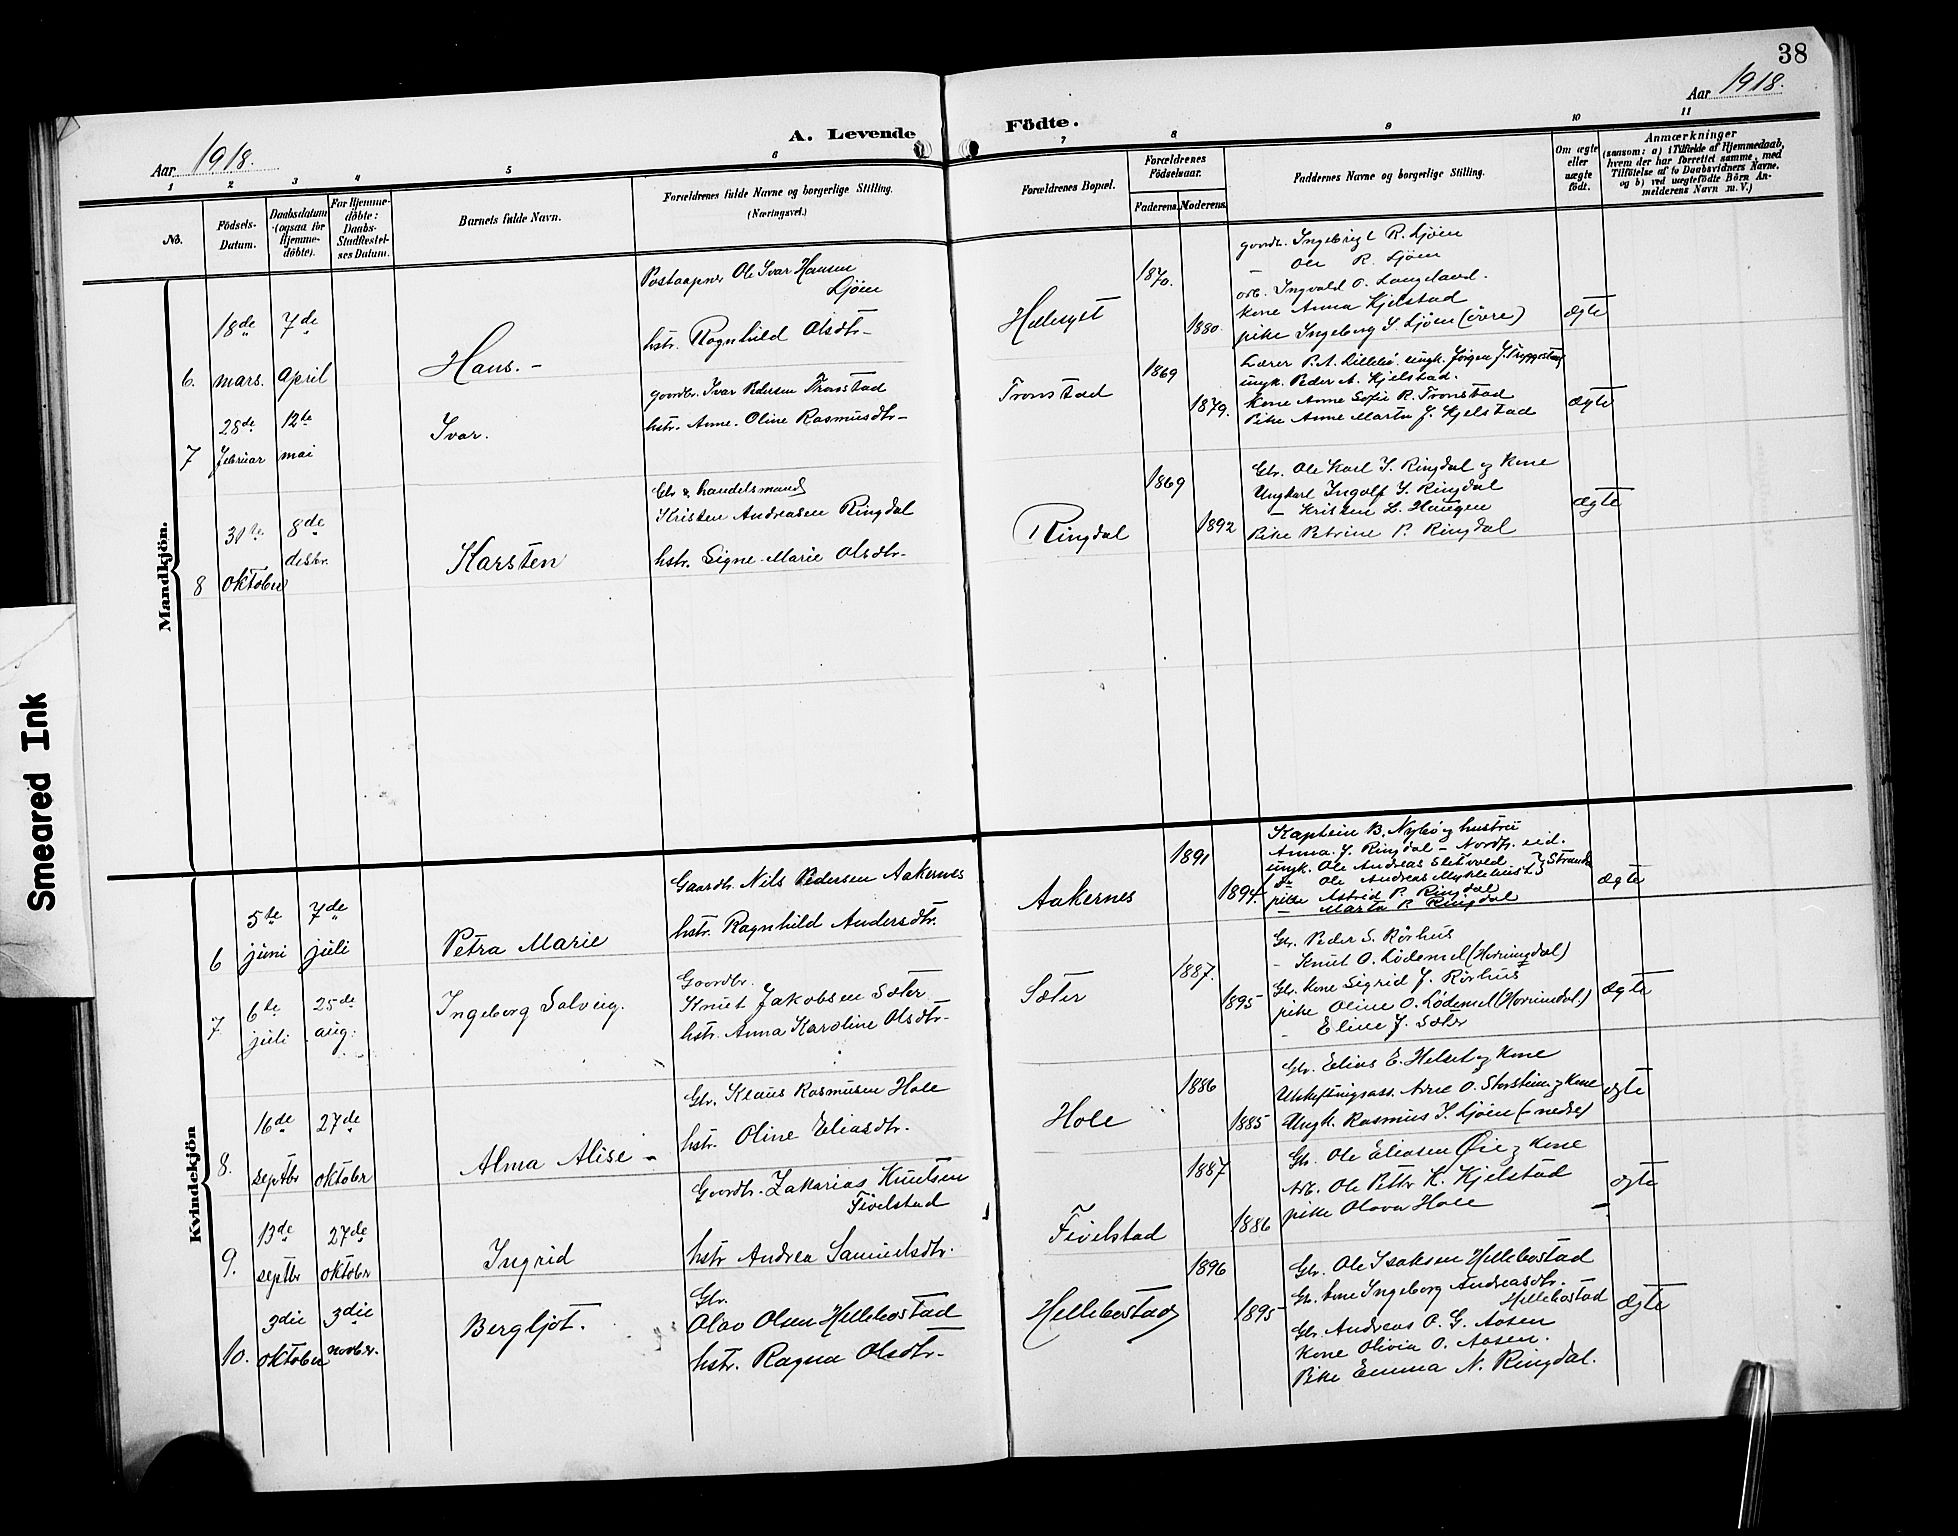 38
Aar 1918.
A. Levende
Födte.
Aar 1918.
1
2
3
4
5
6
7
8
9
10
11
No.
Födsels-
Datum.
Daabsdatum
(ogsaa for
Hjemme-
döbte).
For Hjemme-
döbte:
Daabs-
Stadfæstel-
ses Datum.
Barnets fulde Navn.
Forældrenes fulde Navne og borgerlige Stilling.
(Næringsvei.)
Forældrenes Bopæl.
Forældrenes
Födselsaar.
Faderens.
Moderens.
Faddernes Navne og borgerlige Stilling.
Om ægte
eller
uægte
födt.
Anmærkninger
(saasom: a) i Tilfælde af Hjemmedaab,
hvem der har forrettet samme, med
Tilföielse af to Daabsvidners Navne.
og b) ved uægtefödte Börn An-
melderens Navn m.V.)
Mandkjön.
6.
18de
mars.
7de
April
Hans. -
Postaapner Ole Ivar Hansen
Ljöen
hstr. Ragnhild Olsdtr -
Hellesylt
1870.
1880.
gaardbr. Ingebrigt R. Ljöen
- Ole R. Ljöen
arb. Ingvald O. Langeland.
kone Anna Kjelstad
pike Ingeborg I. Ljöen (övre)
ægte
7
28de
februar
12te
mai
Ivar.
gaardbr. Ivar Pedersen Tronstad
hstr. Anne Oline Rasmusdtr -
Tronstad
1869
1879.
Lærer P. A. Lillebö ungk. Jörgen J. Tryggestad
ungk. Peder A. Kjelstad.
Kone Anne Sofie R. Tronstad
Pike Anne Marta J. Kjelstad
ægte
8
31te
oktober
8de
desbr.
Karsten
Gbr & handelsmand
Kristen Andreasen Ringdal
hstr. Signe Marie Olsdtr -
Ringdal
1869
1892
Gbr. Ole Karl I. Ringdal og Kone
Ungkarl Ingolf I. Ringdal
- Kristen L. Haugen
Pike Petrine P. Ringdal
ægte
Smeared Ink
Kvindekjön
6
5te
juni
7de
juli
Petra Marie
Gaardbr. Nils Pedersen Aakernes
hstr. Ragnhild Andersdtr.
Aakernes
1891
1894.
Kaptein B. Nybö og hustru
Anna J. Ringdal - Nordfj. eid.
ungk. Ole Andreas Slitvold } Stranda
do Ole Andreas Myklebust }
pike Astrid P. Ringdal
- Marta P. Ringdal
ægte
7
6te
juli
25de
aug.
Ingeborg Solveig.
Gaardbr.
Knut Jakobsen Sæter
hstr. Anna Karoline Olsdtr -
Sæter
1887.
1895
Gbr. Peder S. Rörhus
- Knut O. Lödemel (Hornindal)
Gbr. kone Sigrid J. Rörhus
pike Oline O. Lödemel (Hornindal.)
- Eline J. Sæter
ægte
8.
16de
septbr
27de
oktober
Alma Alise -
Gbr. Klaus Rasmusen Hole
hstr. Oline Eliasdtr.
Hole
1886
1885
Gbr. Elias E. Helset og Kone
Utskiftningsass. Arne O. Storheim og Kone
Ungk. Rasmus I. Ljöen (- nedre)
ægte
9.
13de
septbr
27de
oktober
Ingrid
Gaardbr. Zakarias Knutsen
Fivelstad
hstr Andrea Samuelsdtr.
Fivelstad
1887
1886
Gbr. Ole Eliasen Øie og Kone
Arb. Ole Petter K. Kjelstad
pike Olava Hole -
ægte
10.
3die
oktober
3die
novbr.
Bergljot.
Gbr.
Olav Olsen Hellebostad
hstr. Ragna Olsdtr -
Hellebostad
1896
1895
Gbr. Ole Isaksen Hellebostad
Gbr. kone Ingeborg Andreasdtr.
Hellebostad
Gbr. Andreas O. G. Aasen
Kone Olivia O. Aasen.
Pike Emma N. Ringdal.
Ægte